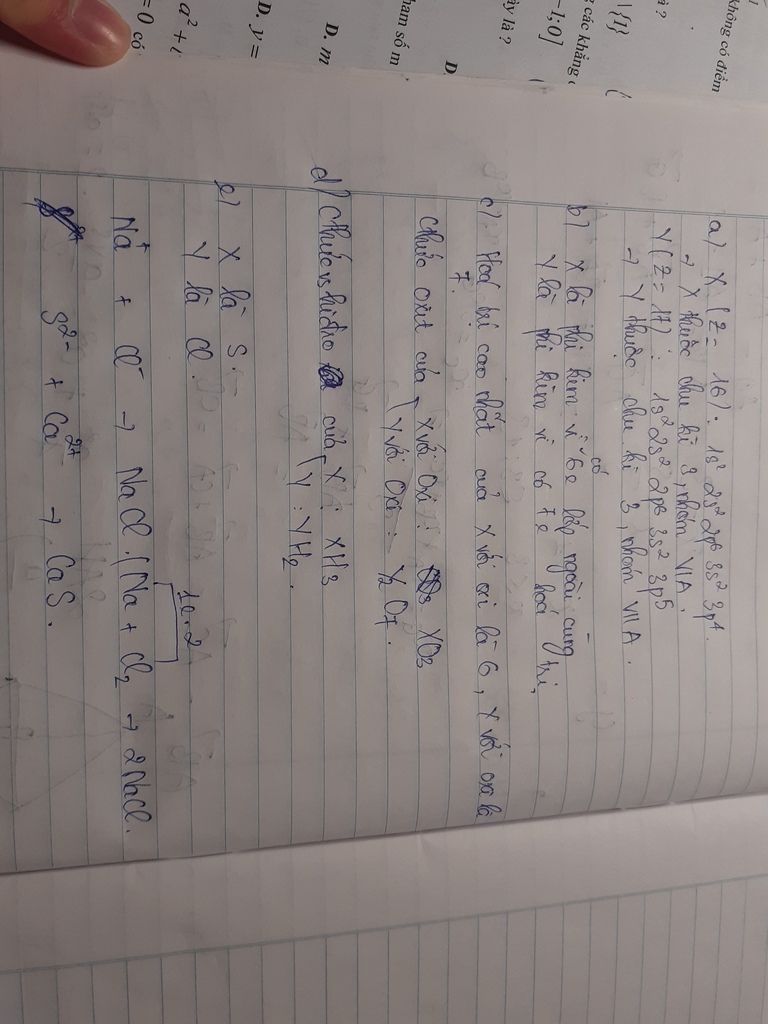 không có điểm
\{1}
à ?
g các khẳng
-1;0]
ây là ?
D.
ham số m
D. m
D. y =
a² +
= 0 có
a) X (Z = 16) : 1s² 2s² 2p⁶ 3s² 3p⁴.
→ X thuộc chu kì 3, nhóm VIA.
Y (Z = 17) : 1s² 2s² 2p⁶ 3s² 3p⁵
→ Y thuộc chu kì 3, nhóm VIIA.
b) X là phi kim vì có 6e lớp ngoài cùng
Y là phi kim vì có 7e hoá trị.
c) Hoá trị cao nhất của X với oxi là 6, Y với oxi là
7.
Công thức oxit của X với Oxi : XO₃
Y với Oxi : Y₂O₇.
d) Công thức vs hiđro của X : XH₃
Y : YH₂.
e) X là S.
Y là Cl.
1e.2
Na⁺ + Cl⁻ → NaCl. (Na + Cl₂ → 2NaCl.
S²⁻ + Ca²⁺ → CaS.